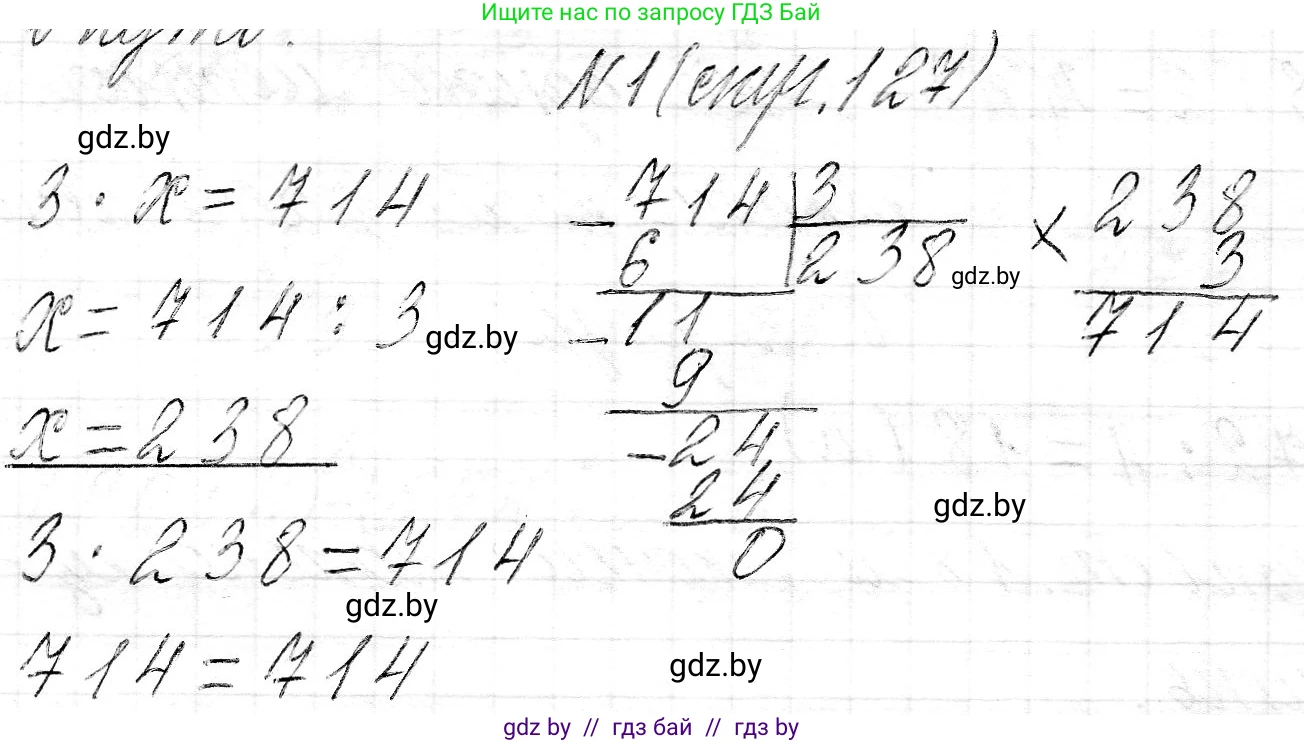 Ищите нас по запросу ГДЗ Бай
N1(стр.127)
gdz.by
3 · x = 714
x = 714 : 3
gdz.by
x = 238
3 · 238 = 714
gdz.by
714 = 714
- 714 | 3
6 | 238
gdz.by
- 11
9
- 24
24
0
× 238
3
714
gdz.by
gdz.by
gdz by // гдз бай // гдз by